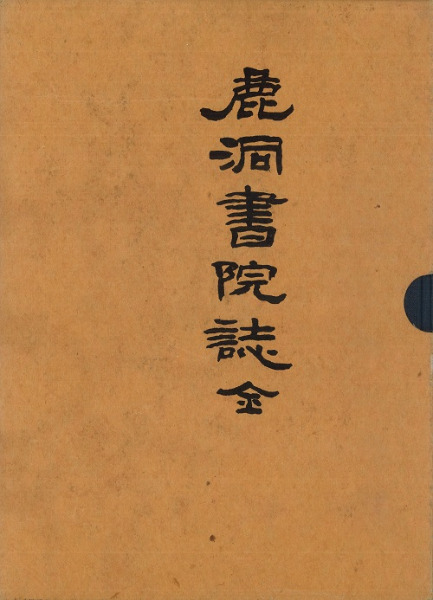 鹿洞書院誌金